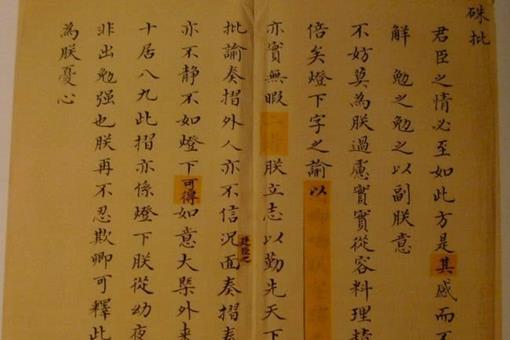 硃批
君臣之情必至如此方是其感而不
解勉之勉之以副朕意
不妨莫為朕過慮實實從容料理精
倍矣燈下字之諭以
亦實無暇一一朕立志以勤先天下
批諭奏摺外人亦不信況廷臣之面奏摺奏
亦不靜不如燈下可得如意大槩外來
十居八九此摺亦係燈下朕從幼夜
非出勉强也朕再不忍欺卿可釋此
為朕憂心